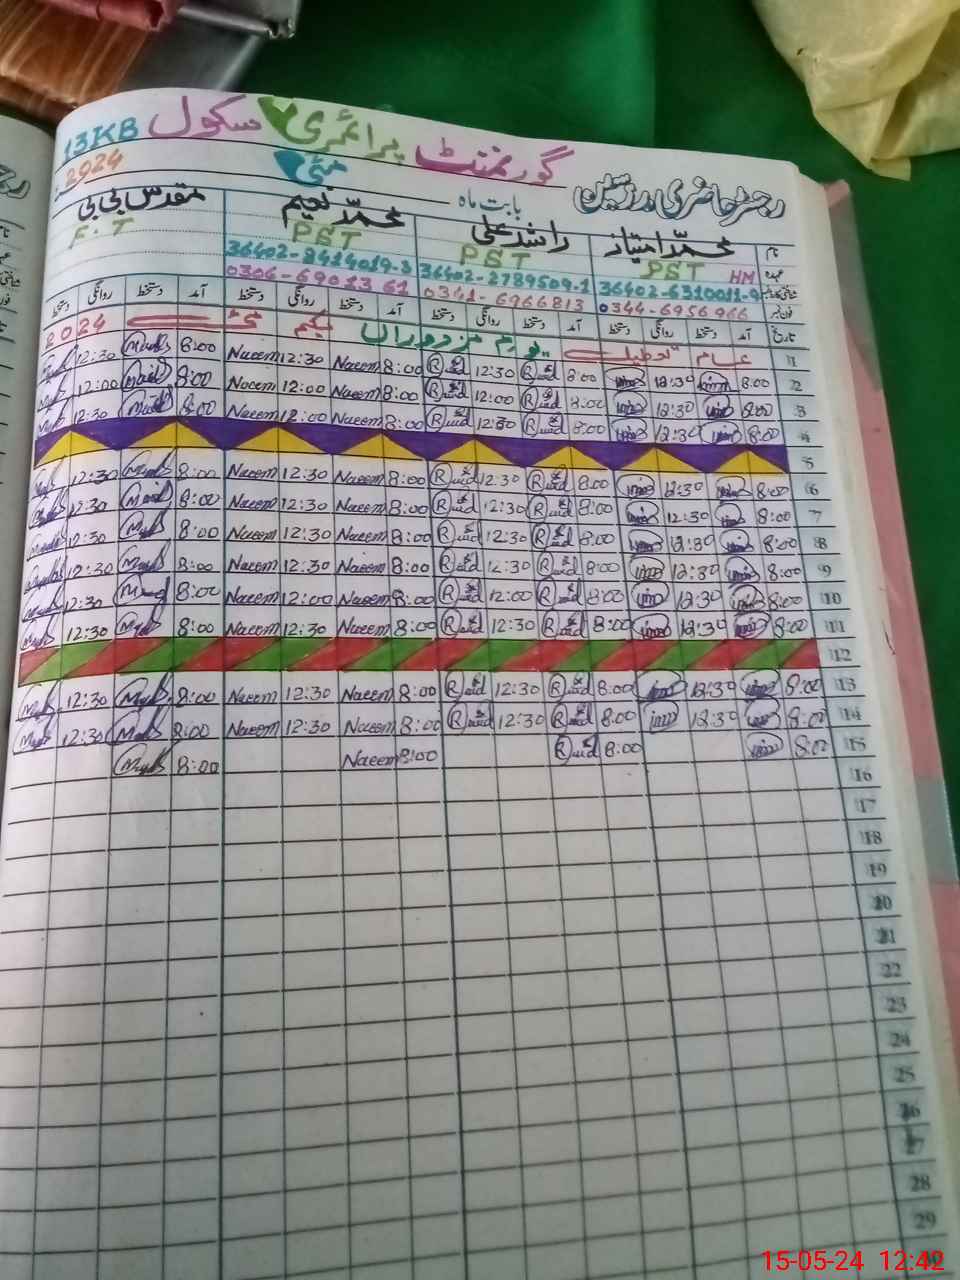 گورنمنٹ پرائمری سکول 13KB
رجسٹر حاضری مدرسین بابت ماہ مئی 2024
نام محمد امتیاز راشد علی محمد نعیم مقدس بی بی
عہدہ PST HM PST PST F.T
36402-6310011-9 36402-2789509-1 36402-8414019-3
فون نمبر 0344-6956966 0341-6966813 0306-6901361
تاریخ آمد دستخط روانگی دستخط آمد دستخط روانگی دستخط آمد دستخط روانگی دستخط آمد دستخط روانگی دستخط
1 عام تعطیل یوم مزدوراں یکم مئی 2024
2 8:00 12:30 8:00 12:30 Naeem 8:00 Naeem 12:30 8:00 12:30
3 8:00 12:30 8:00 12:00 Naeem 8:00 Naeem 12:00 8:00 12:00
4 8:00 12:30 8:00 12:30 Naeem 8:00 Naeem 12:00 8:00 12:30
5
6 8:00 12:30 8:00 12:30 Naeem 8:00 Naeem 12:30 8:00 12:30
7 8:00 12:30 8:00 12:30 Naeem 8:00 Naeem 12:30 8:00 12:30
8 8:00 12:30 8:00 12:30 Naeem 8:00 Naeem 12:30 8:00 12:30
9 8:00 12:30 8:00 12:30 Naeem 8:00 Naeem 12:30 8:00 12:30
10 8:00 12:30 8:00 12:00 Naeem 8:00 Naeem 12:00 8:00 12:30
11 8:00 12:30 8:00 12:30 Naeem 8:00 Naeem 12:30 8:00 12:30
12
13 8:00 12:30 8:00 12:30 Naeem 8:00 Naeem 12:30 8:00 12:30
14 8:00 12:30 8:00 12:30 Naeem 8:00 Naeem 12:30 8:00 12:30
15 8:00 8:00 Naeem 8:00 8:00
16
17
18
19
20
21
22
23
24
25
26
27
28
29
15-05-24 12:42